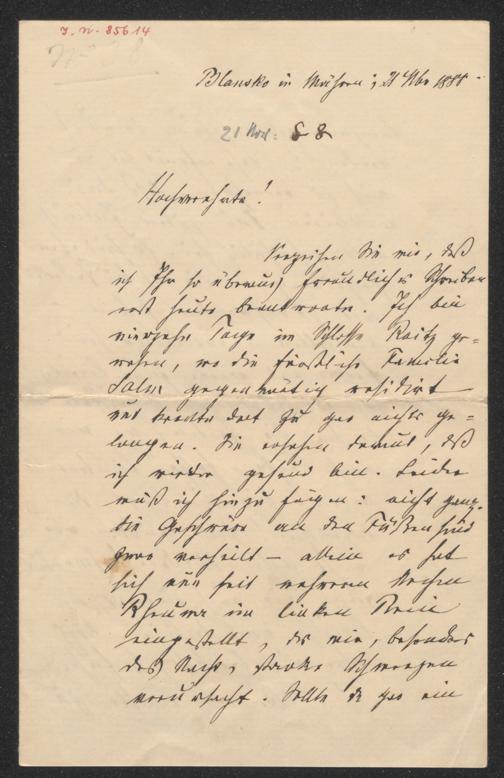 J. N. 85614
Blansko in Mähren, 21 Nbr 1888
21 Nov. 88
Hochverehrte!
Verzeihen Sie mir, daß
ich Ihr so überaus freundliches Schreiben
erst heute beantworte. Ich bin
vierzehn Tage im Schlosse Raitz ge=
wesen, wo die fürstliche Familie
Salm gegenwärtig residirt
und konnte dort zu gar nichts ge=
langen. Sie ersehen daraus, daß
ich wieder gesund bin. Leider
muß ich hinzu fügen: nicht ganz.
Die Geschwüre an den Füßen sind
zwar verheilt – allein es hat
sich nun seit mehreren Wochen
Rheuma im linken Knie
eingestellt, das mir, besonders
des Nachts, starke Schmerzen
verursacht. Sollte da gar ein